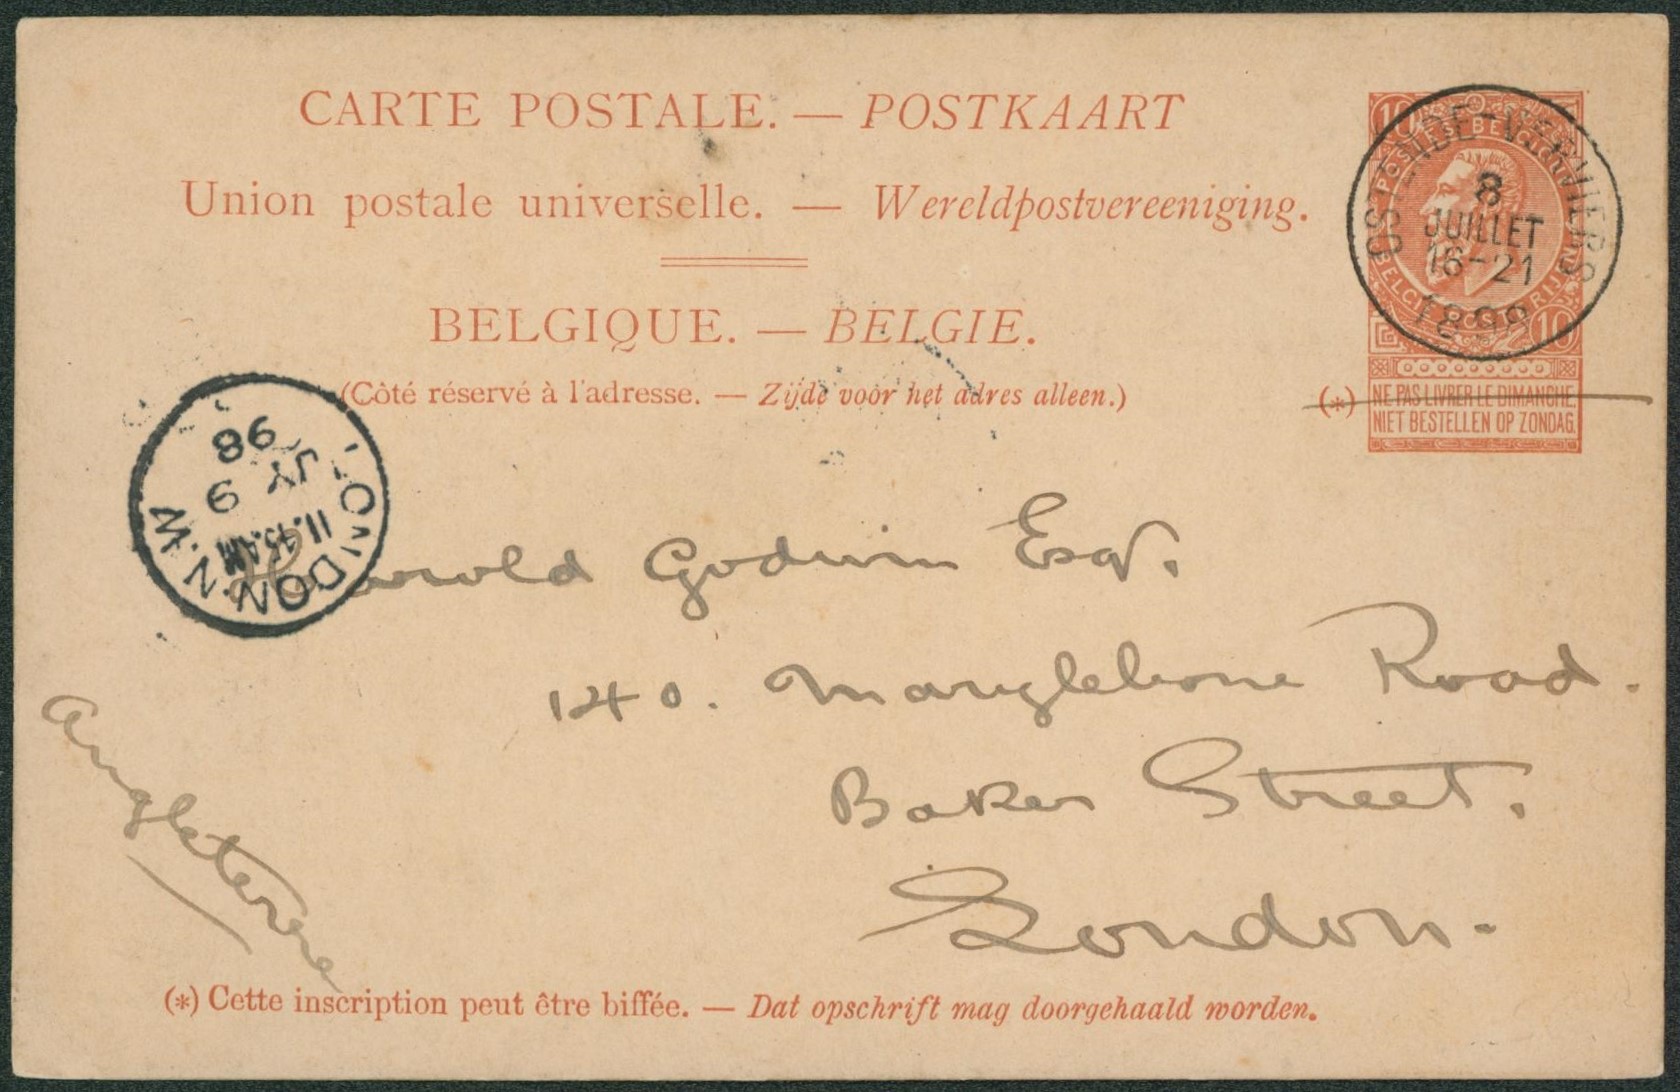 CARTE POSTALE. — POSTKAART
Union postale universelle. — Wereldpostvereeniging.
BELGIQUE. — BELGIE.
(Côté réservé à l'adresse. — Zijde voor het adres alleen.)
10
POSTES BELGIQUE
10
(*) NE PAS LIVRER LE DIMANCHE.
NIET BESTELLEN OP ZONDAG.
OSTENDE-VERVIERS
8
JUILLET
16-21
1898
LONDON. N.W.
11.45AM
JY 9
98
Harold Godwin Esqr.
140. Marylebone Road.
Baker Street.
London.
Angleterre
(*) Cette inscription peut être biffée. — Dat opschrift mag doorgehaald worden.